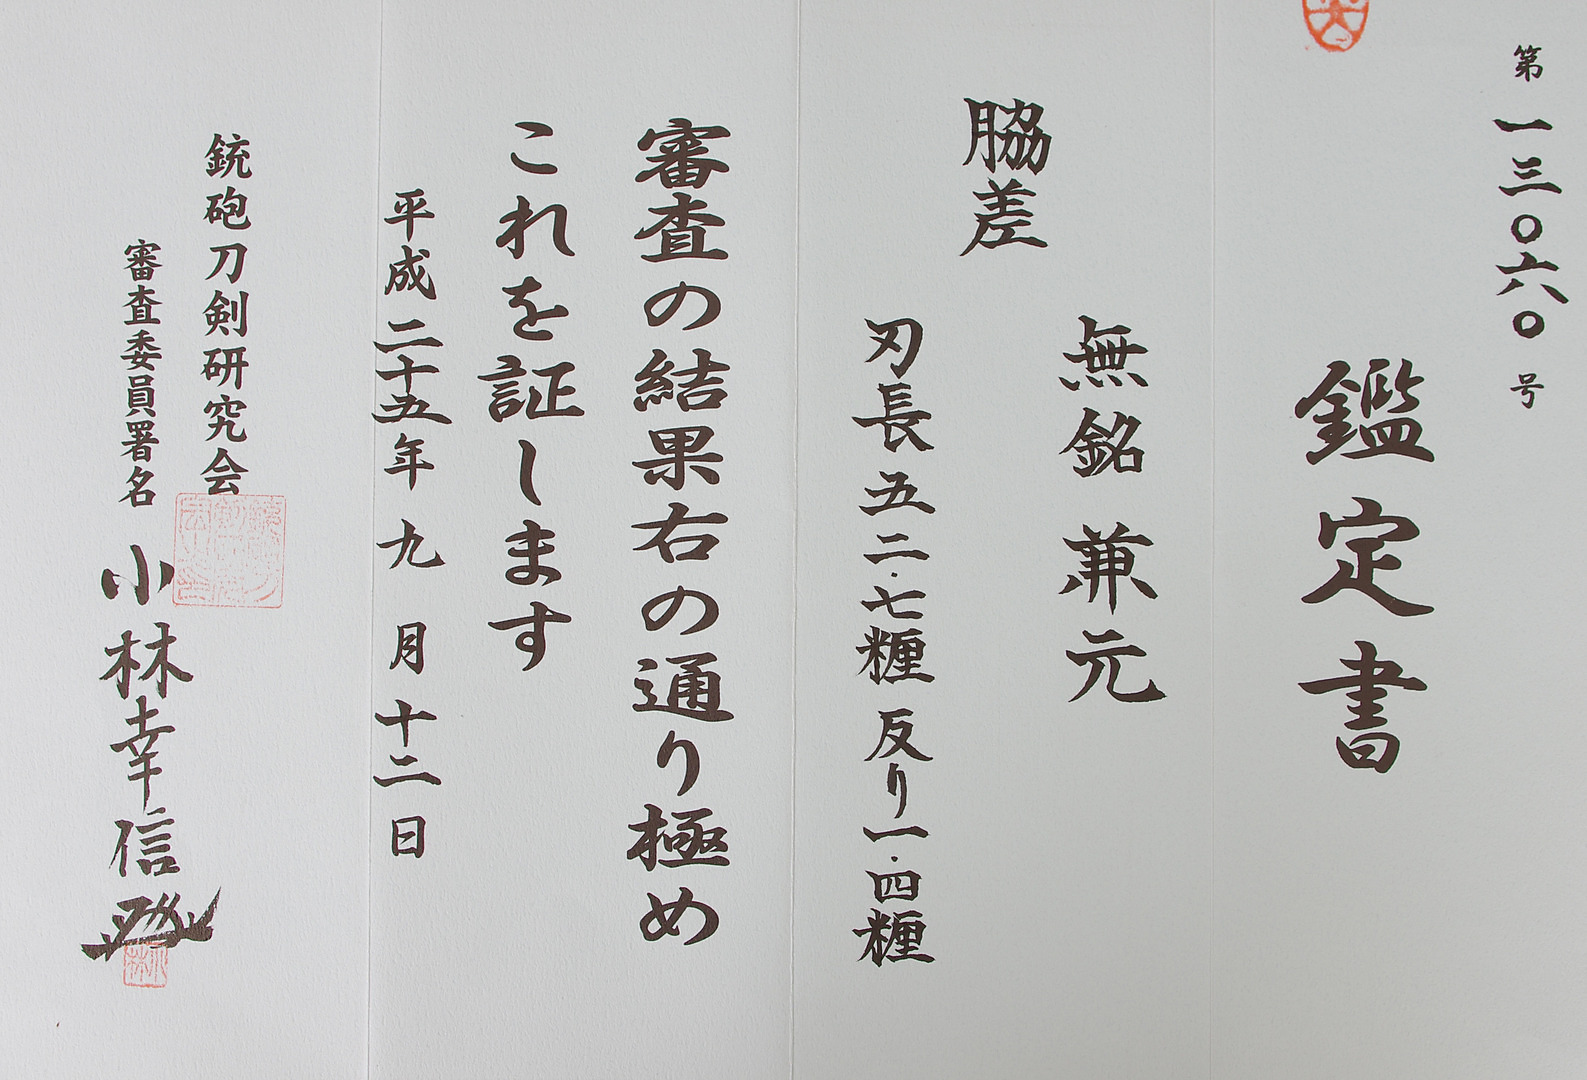 第一三〇六〇号
鑑定書
無銘 兼元
脇差
刃長五二.七糎 反り一.四糎
審査の結果右の通り極め
これを証します
平成二十五年九月十二日
銃砲刀剣研究会
審査委員署名 小林幸信